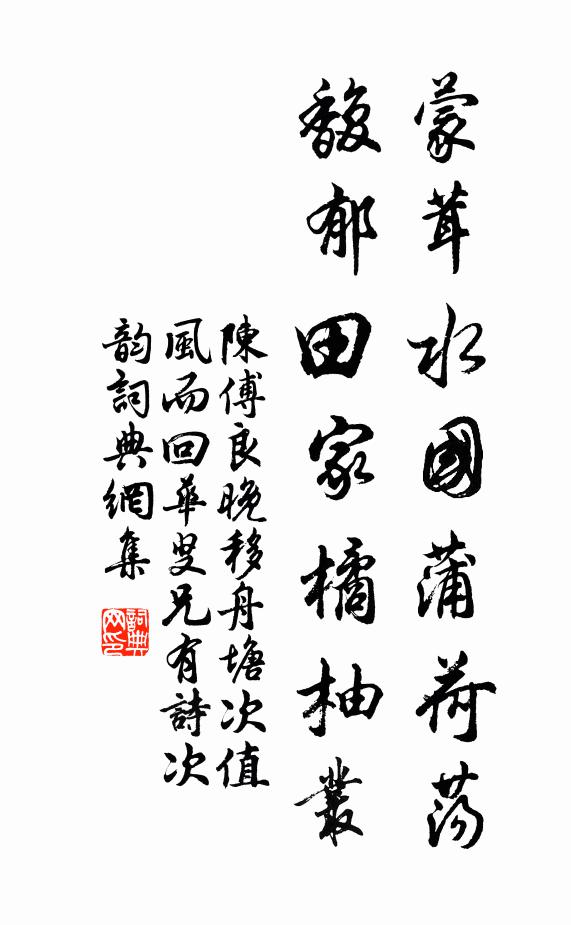 蒙茸水國蒲荷蕩
馥郁田家橘柚叢
陳傅良晚移舟塘次值
風而回華叟兄有詩次
韵詞典網集
詞典
网印